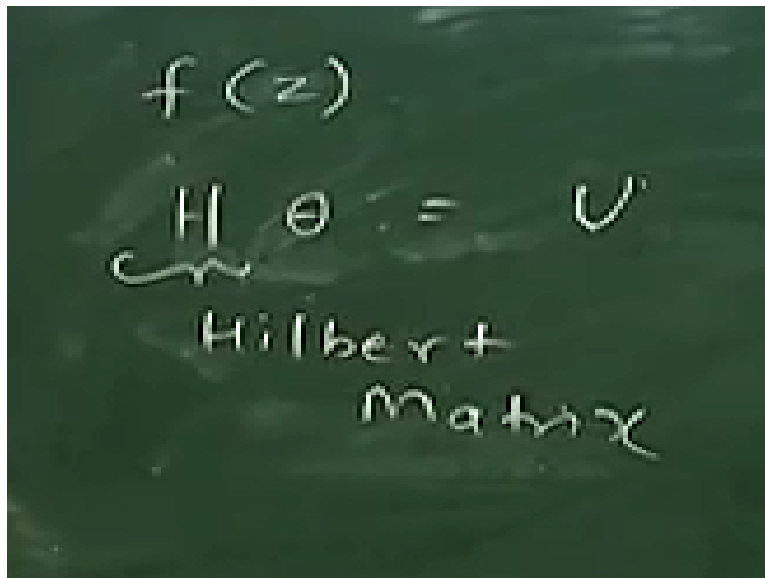 f(z)
H θ = υ
Hilbert
Matrix